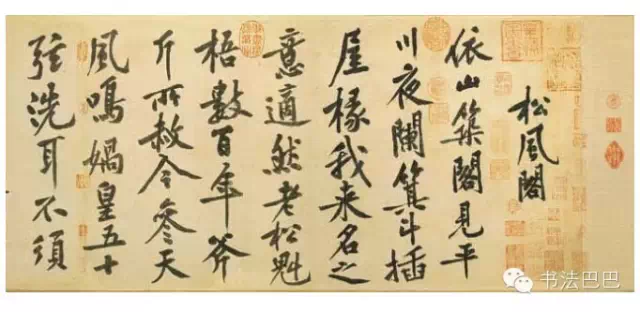 松風閣
依山築閣見平
川夜闌箕斗插
屋椽我来名之
意適然老松魁
梧數百年斧
斤所赦今參天
風鳴媧皇五十
弦洗耳不須
书法巴巴